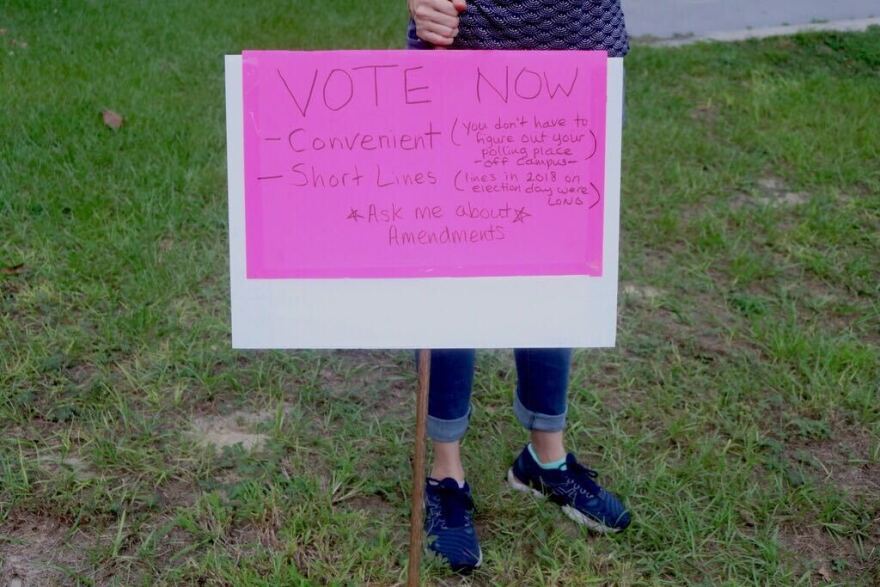 VOTE NOW
- Convenient (you don't have to
figure out your
polling place
-off campus-)
- Short Lines (lines in 2018 on
election day were
LONG)
☆Ask me about☆
Amendments